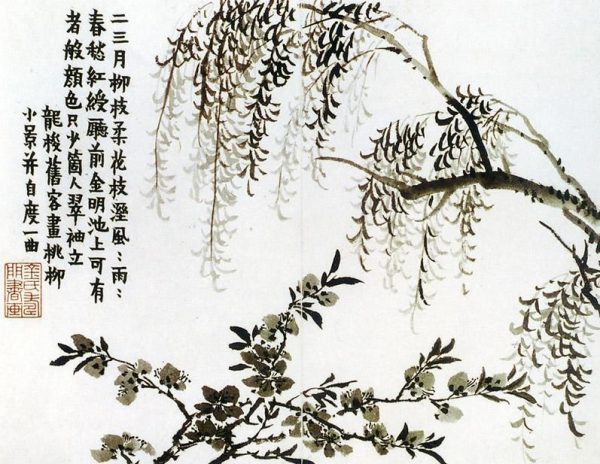 二三月柳枝柔花枝溼風〻雨〻
春愁紅綬廳前金明池上可有
者般顏色只少箇人翠袖立
龍梭舊客畫桃柳
小景并自度一曲
金氏壽門書畫